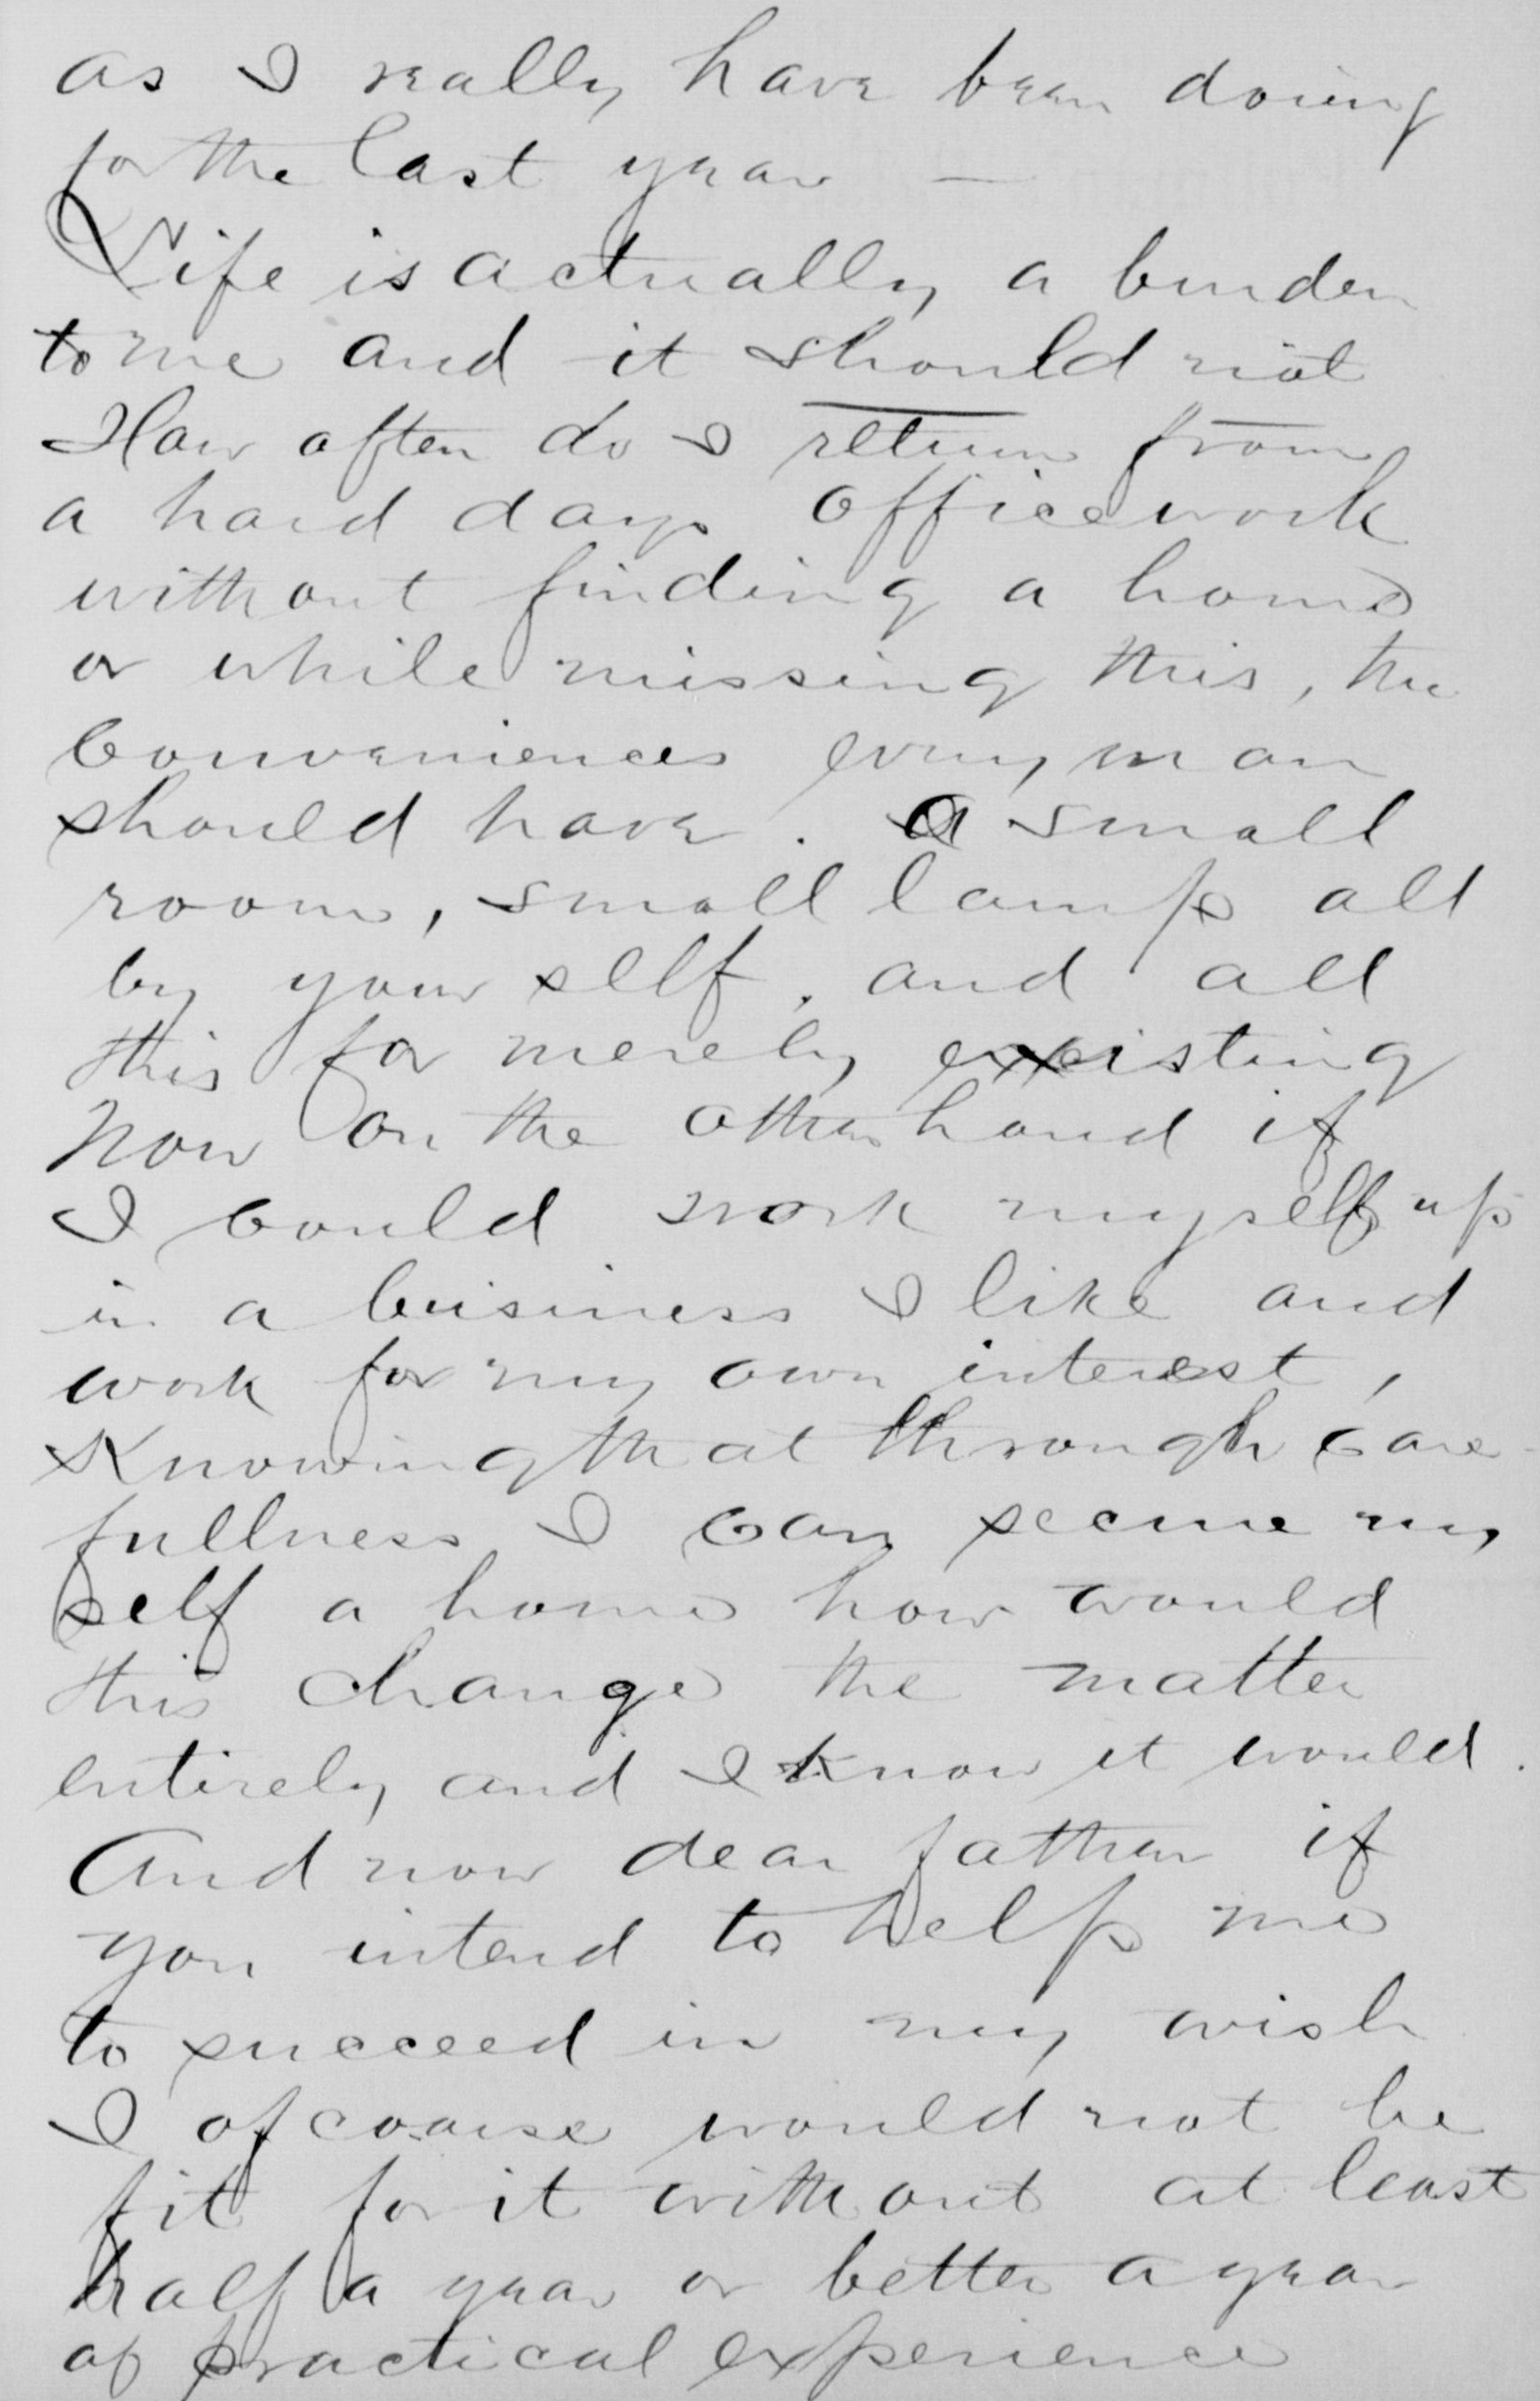 as I really have been doing
for the last year —
Life is actually a burden
to me and it should not
How often do I return from
a hard days office work
without finding a home
or while missing this, the
conveniences every man
should have. A small
room, small lamp all
by your self, and all
this for merely existing
Now on the other hand if
I could work myself up
in a buisiness I like and
work for my own interest,
Knowing that through care-
fullness I can secure my
self a home how would
this change the matter
entirely and I know it would.
And now dear father if
you intend to help me
to succeed in my wish
I of coarse would not be
fit for it without at least
half a year or better a year
of practical experience